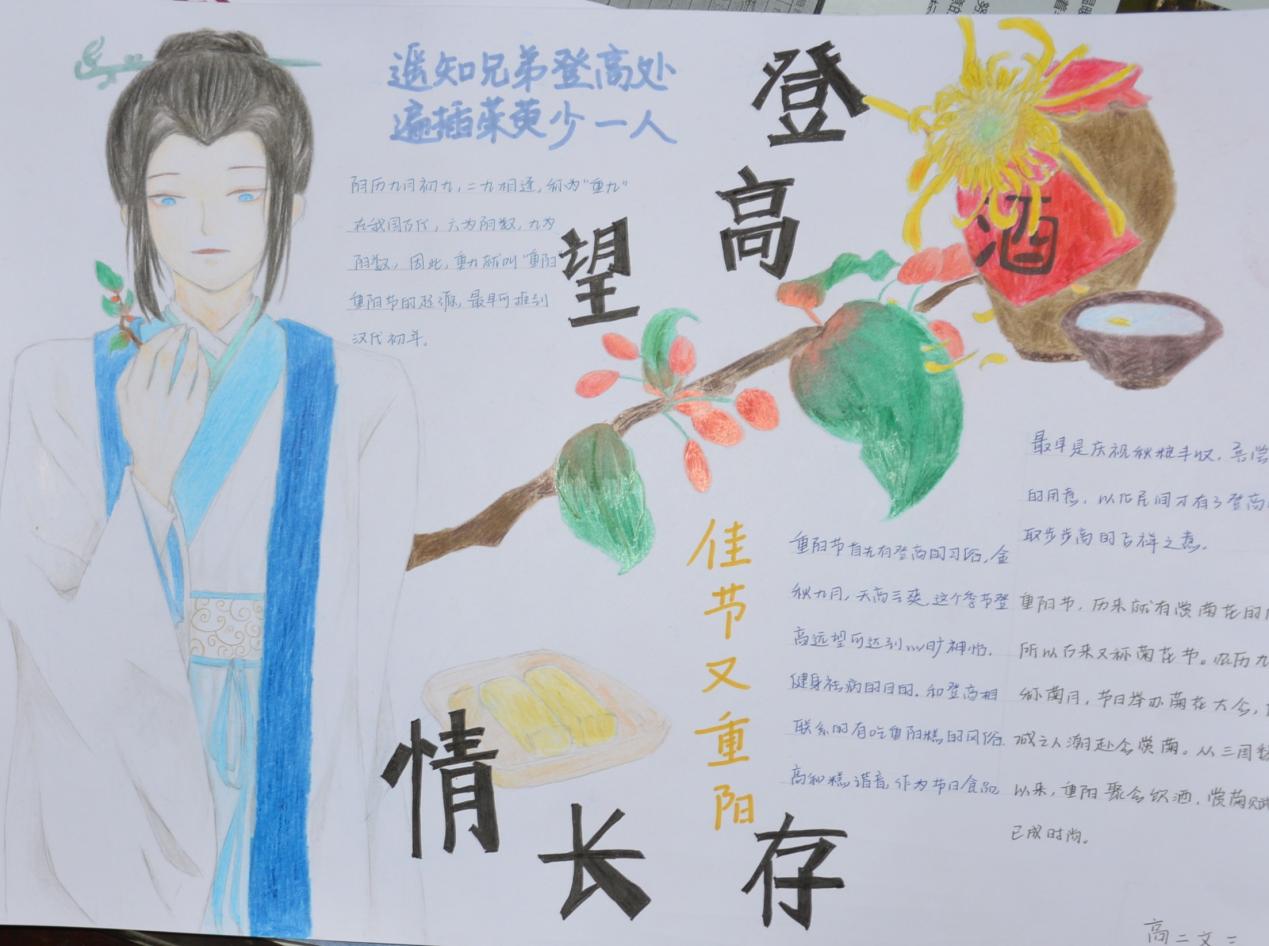 遥知兄弟登高处
遍插茱萸少一人
阴历九月初九，二九相逢，称为"重九"
在我国古代，六为阴数，九为
阳数，因此，重九就叫"重阳
重阳节的起源，最早可推到
汉代初年。
登
高
望
酒
佳
节
又
重
阳
情
长
存
重阳节首先有登高的习俗，金
秋九月，天高气爽，这个季节登
高远望可达到心旷神怡，
健身祛病的目的。和登高相
联系的有吃重阳糕的风俗。
高和糕谐音，作为节日食品
最早是庆祝秋粮丰收，喜尝
的用意，以后民间才有了登高
取步步高的吉祥之意。
重阳节，历来就有赏菊花的
所以古来又称菊花节。农历九
称菊月，节日举办菊花大会，
城之人潮赴会赏菊。从三国
以来，重阳聚会饮酒、赏菊赋
已成时尚。
高二文二